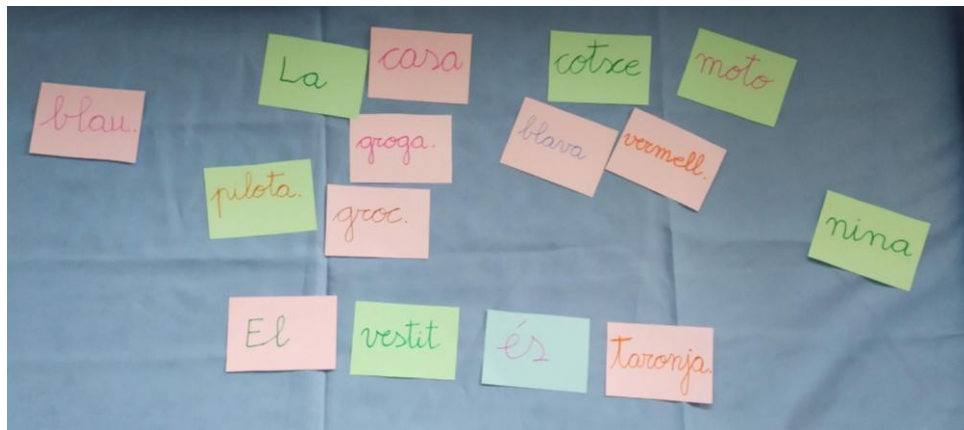 La casa cotxe moto
blau.
groga. blava vermell.
pilota. groc.
nina
El vestit és taronja.